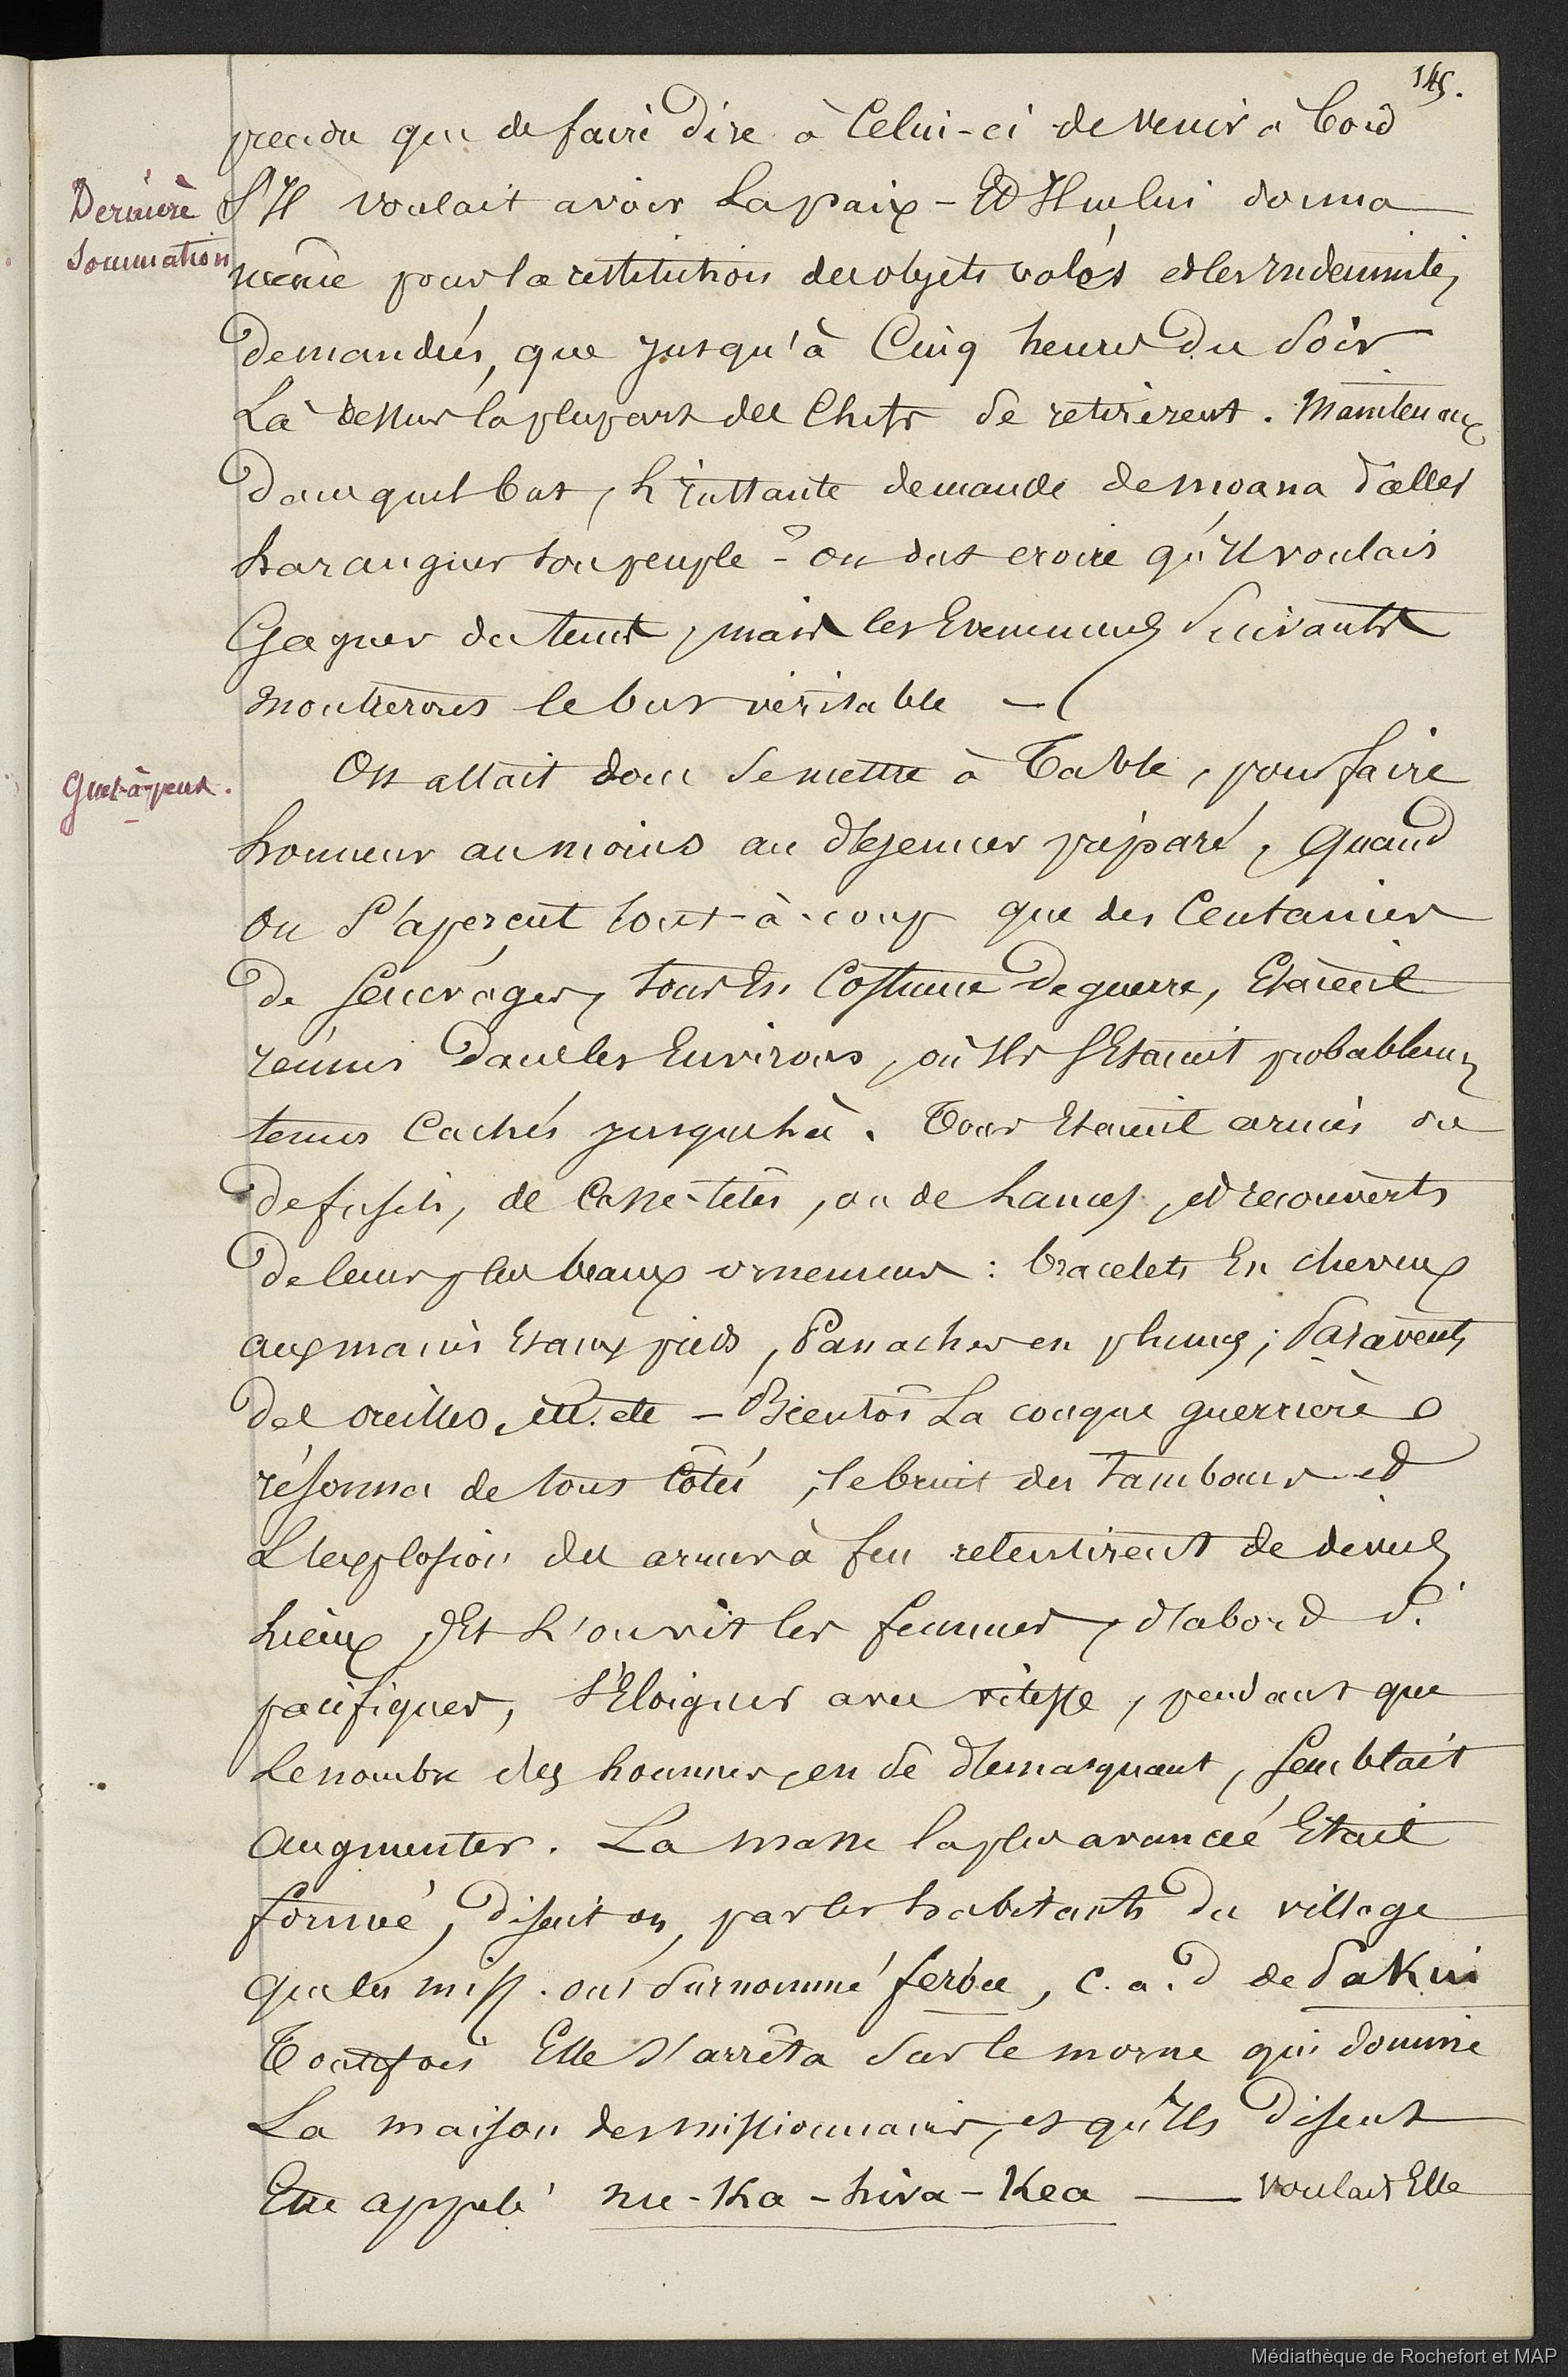 145.
que de faire dire à Celui-ci de venir à bord
Dernière
Sommation
S'Il voulait avoir La paix - Et Il ne lui donna
même pour la restitution des objets volés et les Indemnités
Demandées, que jusqu'à Cinq heures Du Soir
Là dessus la plupart des Chefs se retirèrent. Maintenant
Dans quel but, L'instante demande de moana d'aller
haranguer son peuple - on dut croire qu'Il voulait
Gagner du tems, mais les Evenemens Suivants
montrerons le but véritable -
Guet-à-pens.
On allait donc se mettre à Table, pour faire
honneur au moins au déjeuner préparé, quand
on S'aperçut tout-à-coup que des Centaines
De Sauvages, tous En Costume De guerre, Etaient
réunis Dans les Environs, où Ils S'Etaient probablement
tenus Cachés jusques là. Tous Etaient armés ou
De fusils, de Casse-têtes, ou de Lances, et recouverts
De leurs plus beaux ornemens : bracelets En cheveux
aux mains Et aux pieds, Panaches en plumes; Paravents
Des oreilles, etc. etc - Bientôt La conque guerrière
résonna de tous Côtés, le bruit des Tambours et
L'explosion des armes à feu retentirent de divers
Lieux, Et L'on vit les femmes, d'abord Si
pacifiques, S'Eloigner avec vitesse, pendant que
Le nombre des hommes, en se démasquant, Semblait
Augmenter. La masse la plus avancée Etait
formée, Disait on, par les habitants Du village
que les miss. ont Surnommé ferbee, C. a. D de Pakiu
Toutefois Elle S'arrêta Sur le morne qui domine
La maison des missionnaires, et qu'Ils Disent
Etre appelé nu-Ka-hiva-Kea — voulait Elle
Médiathèque de Rochefort et MAP